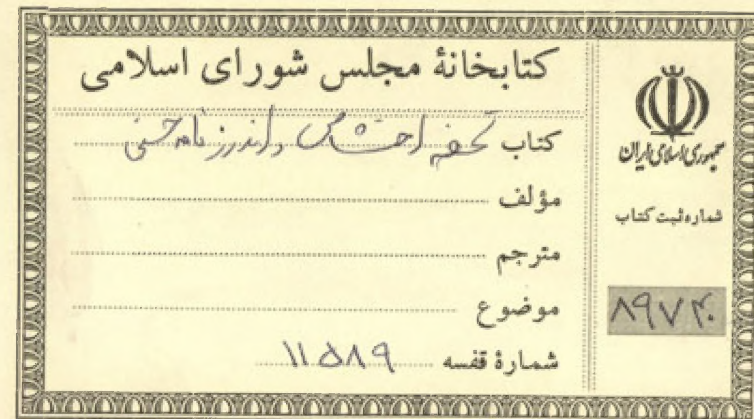 کتابخانهٔ مجلس شورای اسلامی
کتاب تحفه و اندرز نامه حسنی
مؤلف
مترجم
موضوع
شمارهٔ قفسه ۱۱۵۸۹
جمهوری اسلامی ایران
شماره ثبت کتاب
۸۹۷۴۰